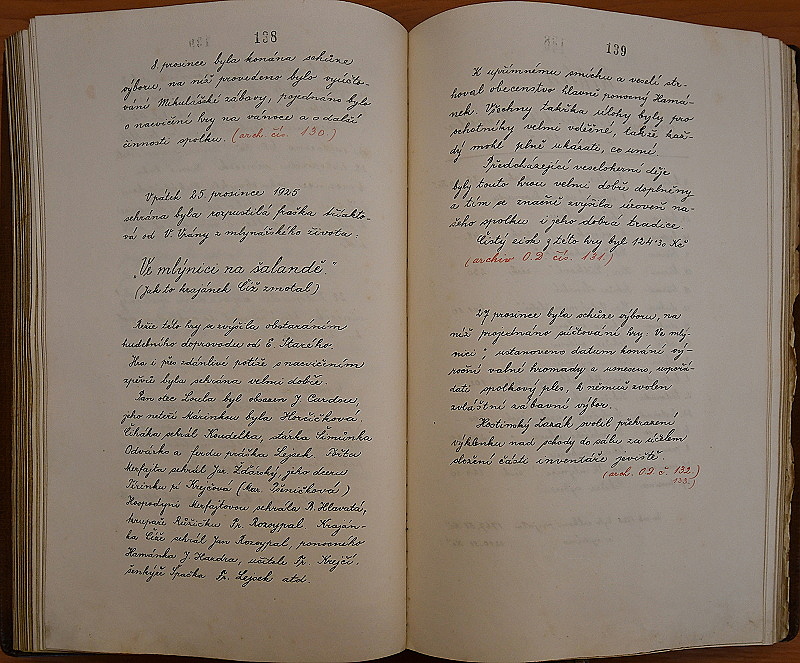 138
8. prosince byla konána schůze
výboru, na níž provedeno bylo vyúčto-
vání Mikulášské zábavy, pojednáno bylo
o nacvičení hry na vánoce a o další
činnosti spolku. (arch. čís. 130.)
V pátek 25. prosince 1925
sehrána byla rozpustilá fraška tříakto-
vá od V. Vrány z mlynářského života:
„Ve mlýnici na šalandě."
(Jak to krajánek Číž zmotal.)
Režie této hry se zvýšila obstaráním
hudebního doprovodu od E. Starého.
Hra i přes zdánlivé potíže s nacvičením
zpěvů byla sehrána velmi dobře.
Pan otec Loula byl obsazen J. Curdou,
jeho neteří Mařinkou byla Horčičková.
Čiháka sehrál Koudelka, stárka Šimůnka
Odvárko a ferdu práška Lejsek.
Kerfajta sehrál Jar. Zdtářský, jeho dceru
Jiřinku pí Krejčová (Mar. Pšeničková)
Hospodyni Kerfajtovou sehrála B. Hlavatá,
krupaře Růžičku Fr. Rozsypal. Kraján-
ka Číže sehrál Jan Rozsypal, ponocného
Hamánka J. Hazdra, učitele Fr. Krejčí,
šenkýře Špačka Fr. Lejcek atd.
139
K upřímnému smíchu a veselí str-
hoval obecenstvo hlavně ponocný Hamá-
nek. Všechny takřka úlohy byly pro
ochotníky velmi vděčné, takže kaž-
dý mohl plně ukázati, co umí.
Předcházející veseloherní děje
byly touto hrou velmi dobře doplněny
a tím se značně zvýšila úroveň na-
šeho spolku i jeho dobrá tradice
Čistý zisk z této hry byl 124·30 Kč
(archiv O.D. čís. 131.)
27 prosince byla schůze výboru, na
níž projednáno súčtování hry: Ve mlý-
nici", ustanoveno datum konání vý-
roční valné hromady a usneseno, uspořá-
dati spolkový ples, k němuž zvolen
zvláštní zábavní výbor.
Hostinský Lazák svolil přehrazení
výklenku nad schody do sálu za účelem
složení části inventáře jeviště.
(arch. O.D. č. 132.)
133.)